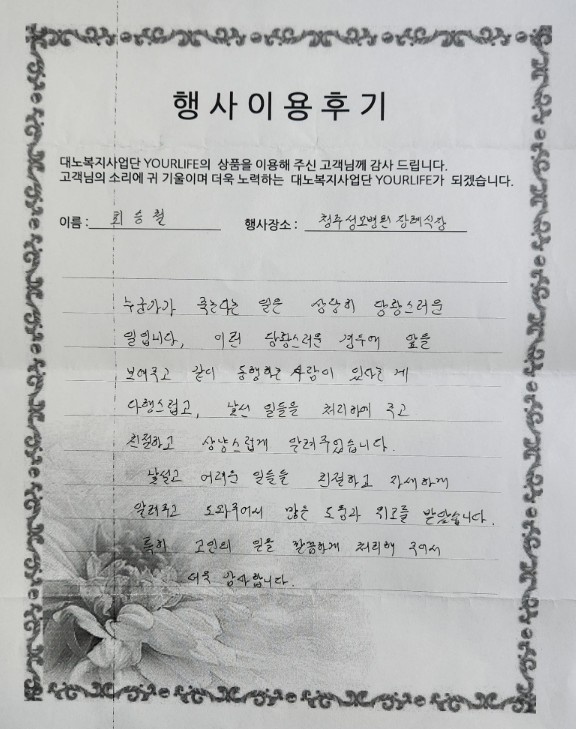 행사이용후기
대노복지사업단 YOURLIFE의 상품을 이용해 주신 고객님께 감사 드립니다.
고객님의 소리에 귀 기울이며 더욱 노력하는 대노복지사업단 YOURLIFE가 되겠습니다.
이름 : 최승철 행사장소 : 청주성모병원 장례식장
누군가가 죽는다는 일은 상당히 당황스러운
일입니다. 이런 당황스러운 경우에 앞을
보여주고 같이 동행하는 사람이 있다는 게
다행스럽고, 낯선 일들을 처리하여 주고
친절하고 상냥스럽게 알려주었습니다.
낯설고 어려운 일들을 친절하고 자세하게
알려주고 도와주어서 많은 도움과 위로를 받았습니다.
특히 고인의 일을 깔끔하게 처리해 주어서
더욱 감사합니다.